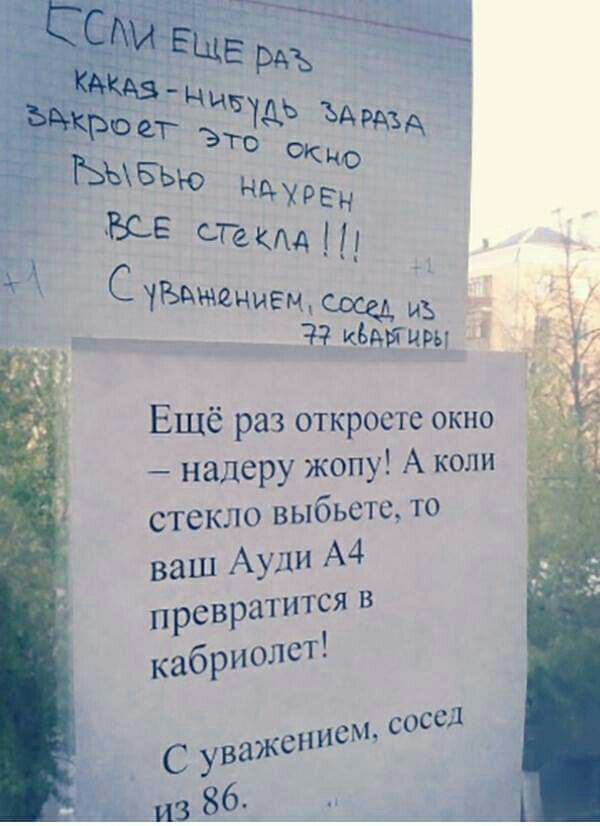 ЕСЛИ ЕЩЕ РАЗ
КАКАЯ-НИБУДЬ ЗАРАЗА
ЗАКРОЕТ ЭТО ОКНО
ВЫБЬЮ НАХРЕН
ВСЕ СТЕКЛА!!!
+1 +1
С УВАЖЕНИЕМ, СОСЕД ИЗ
77 КВАРТИРЫ
Ещё раз откроете окно
– надеру жопу! А коли
стекло выбьете, то
ваш Ауди А4
превратится в
кабриолет!
С уважением, сосед
из 86.